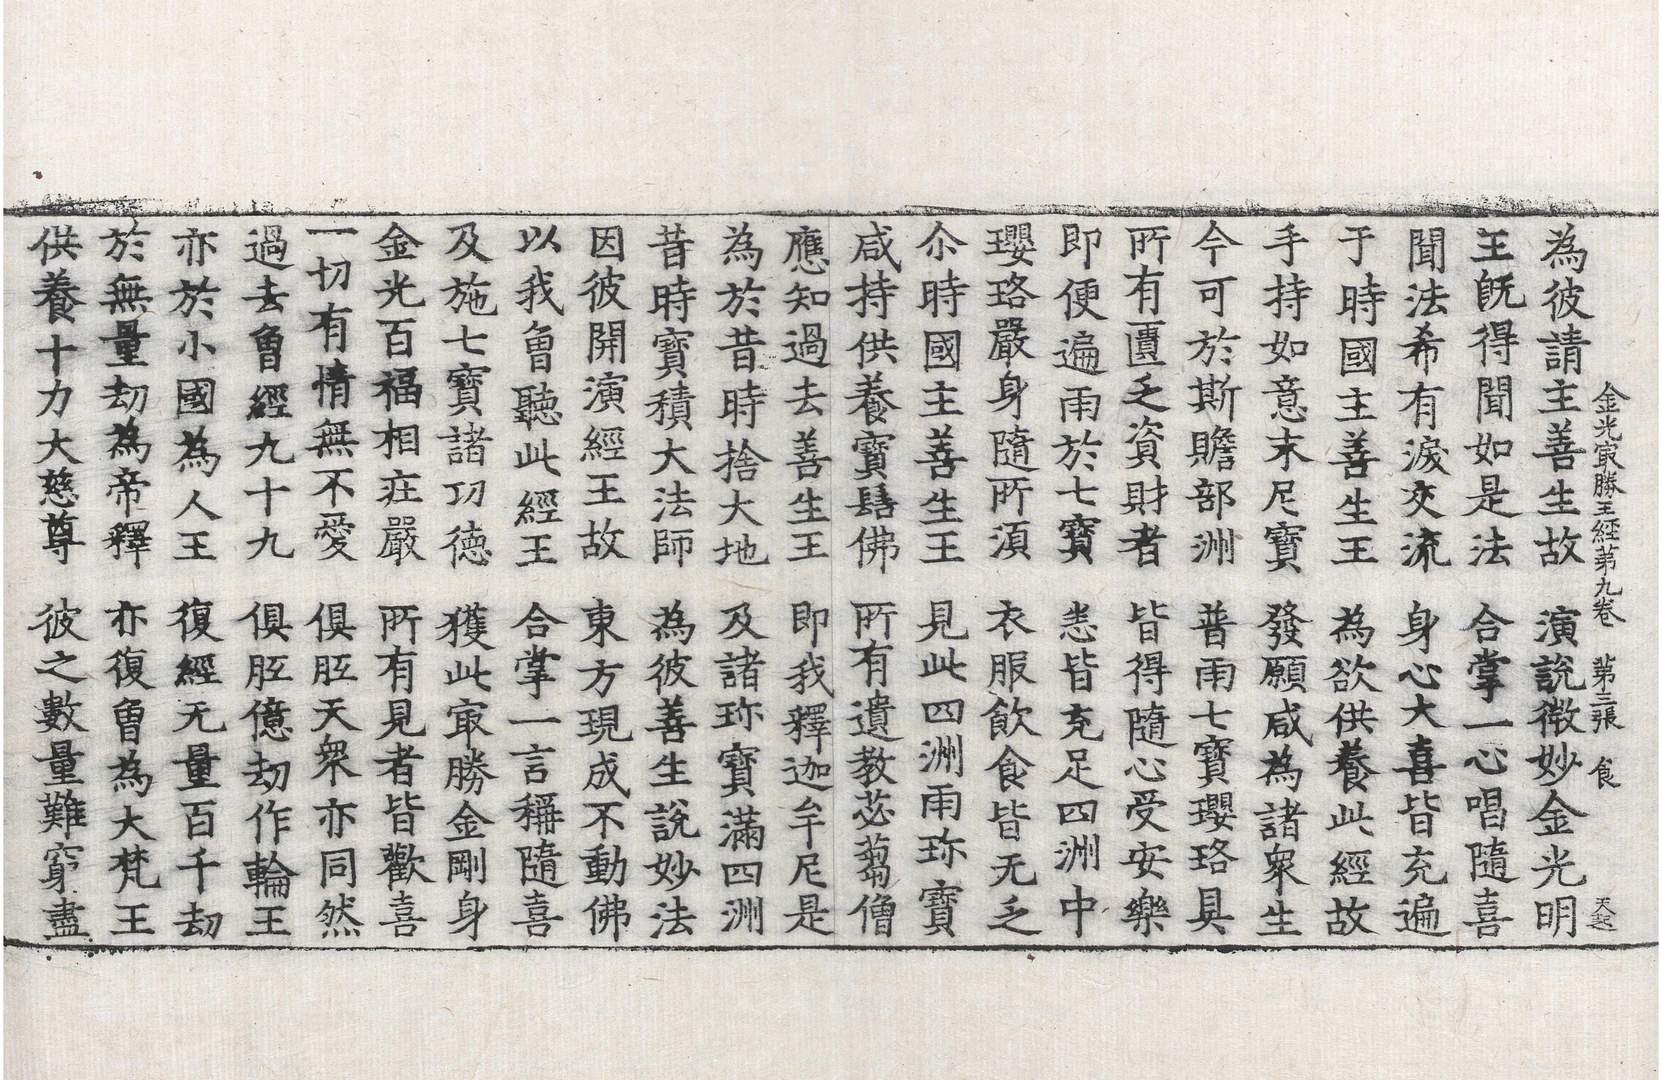 金光冣勝王經第九卷　第三張　食　天起
為彼請主善生故　演說微妙金光明
王旣得聞如是法　合掌一心唱隨喜
聞法希有淚交流　身心大喜皆充遍
于時國主善生王　為欲供養此經故
手持如意末尼寶　發願咸為諸衆生
今可於斯贍部洲　普雨七寶瓔珞具
所有匱乏資財者　皆得隨心受安樂
即便遍雨於七寶　悉皆充足四洲中
瓔珞嚴身隨所須　衣服飲食皆无乏
尒時國主善生王　見此四洲雨珎寶
咸持供養寶髻佛　所有遺教苾蒭僧
應知過去善生王　即我釋迦牟尼是
為於昔時捨大地　及諸珎寶滿四洲
昔時寶積大法師　為彼善生說妙法
因彼開演經王故　東方現成不動佛
以我曾聽此經王　合掌一言稱隨喜
及施七寶諸功德　獲此冣勝金剛身
金光百福相庄嚴　所有見者皆歡喜
一切有情無不愛　俱胝天衆亦同然
過去曾經九十九　俱胝億劫作輪王
亦於小國為人王　復經无量百千劫
於無量劫為帝釋　亦復曾為大梵王
供養十力大慈尊　彼之數量難窮盡